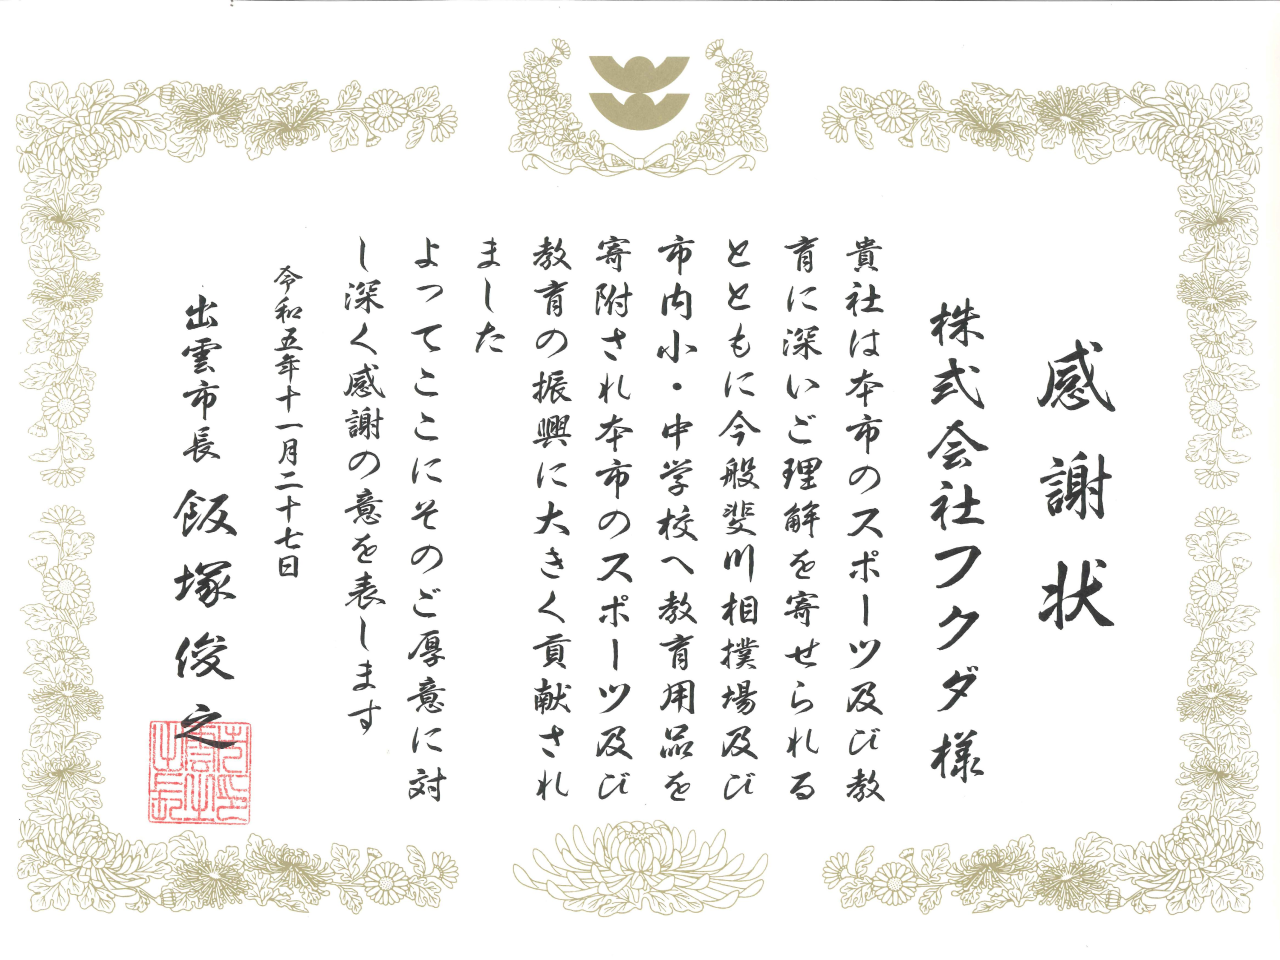 感謝状
株式会社フクダ様
貴社は本市のスポーツ及び教
育に深いご理解を寄せられる
とともに今般斐川相撲場及び
市内小・中学校へ教育用品を
寄附され本市のスポーツ及び
教育の振興に大きく貢献され
ました
よってここにそのご厚意に対
し深く感謝の意を表します
令和五年十一月二十七日
出雲市長 飯塚俊之